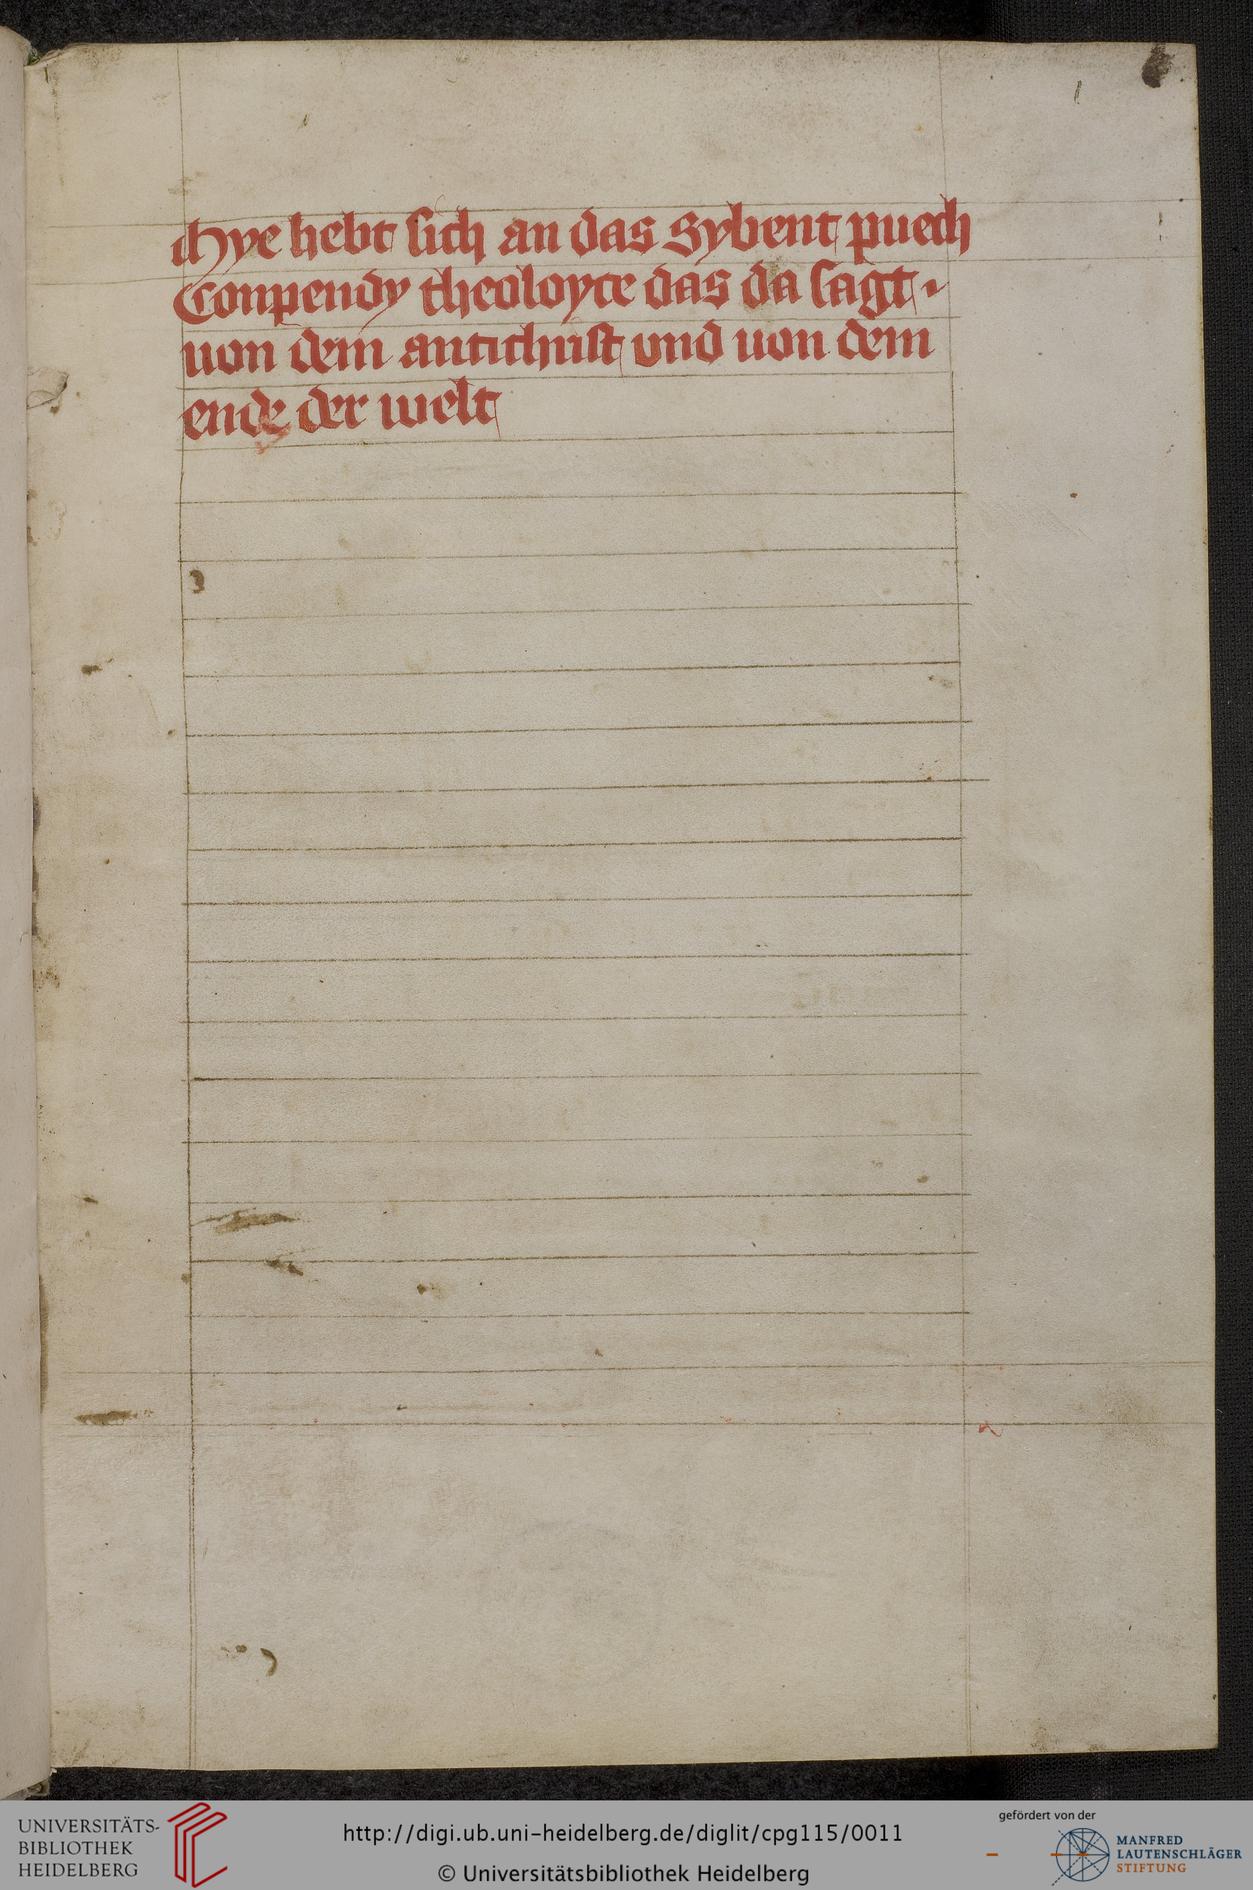 1
Hye hebt sich an das Sybent puech
Conpendy theoloyce das da sagt .
uon dem antichrist vnd uon dem
ende der welt
UNIVERSITÄTS-
BIBLIOTHEK
HEIDELBERG
http://digi.ub.uni-heidelberg.de/diglit/cpg115/0011
© Universitätsbibliothek Heidelberg
gefördert von der
MANFRED
LAUTENSCHLÄGER
STIFTUNG